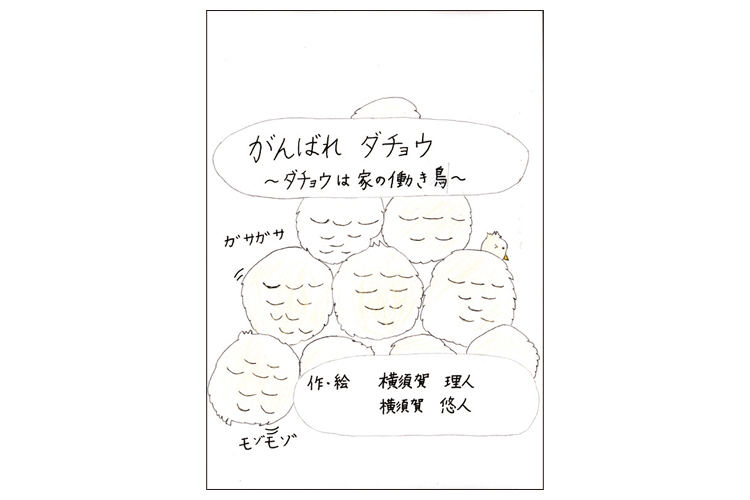 がんばれ ダチョウ
～ダチョウは家の働き鳥～
ガサガサ
作・絵 横須賀 理人
横須賀 悠人
モゾモゾ